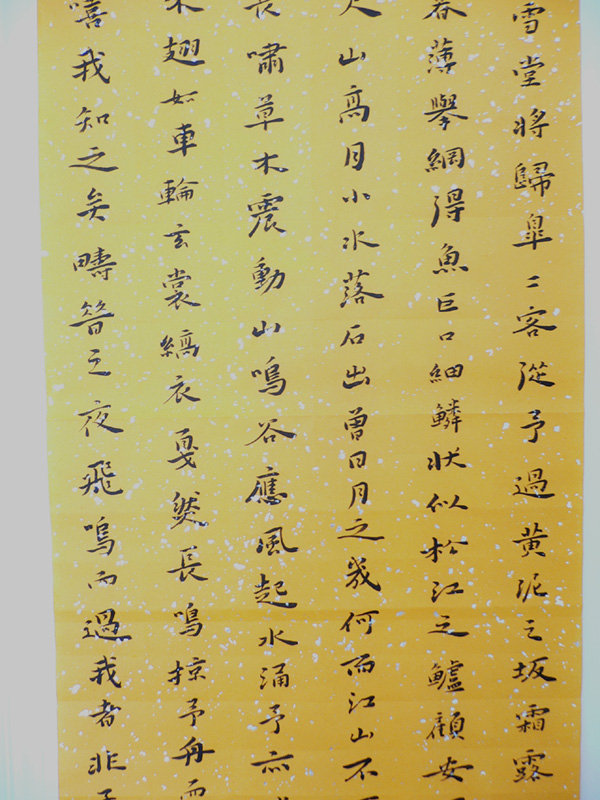 雪堂將歸臯二客從予過黃泥之坂霜露
暮薄舉網得魚巨口細鱗狀似松江之鱸顧安
尺山高月小水落石出曾日月之幾何而江山不
長嘯草木震動山鳴谷應風起水涌予亦
翅如車輪玄裳縞衣戛然長鳴掠予舟而
嘻我知之矣疇昔之夜飛鳴而過我者非